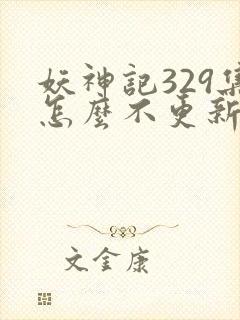 妖神記329集
怎麼不更新
文金康